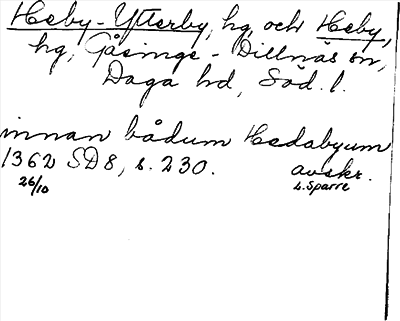 Heby-Ytterby, hg, och Heby,
hg, Gåsinge-Dillnäs sn,
Daga hd, Söd. l.
innan bådum Hedabyum
1362 SD 8, s. 230. avskr.
26/10 L. Sparre